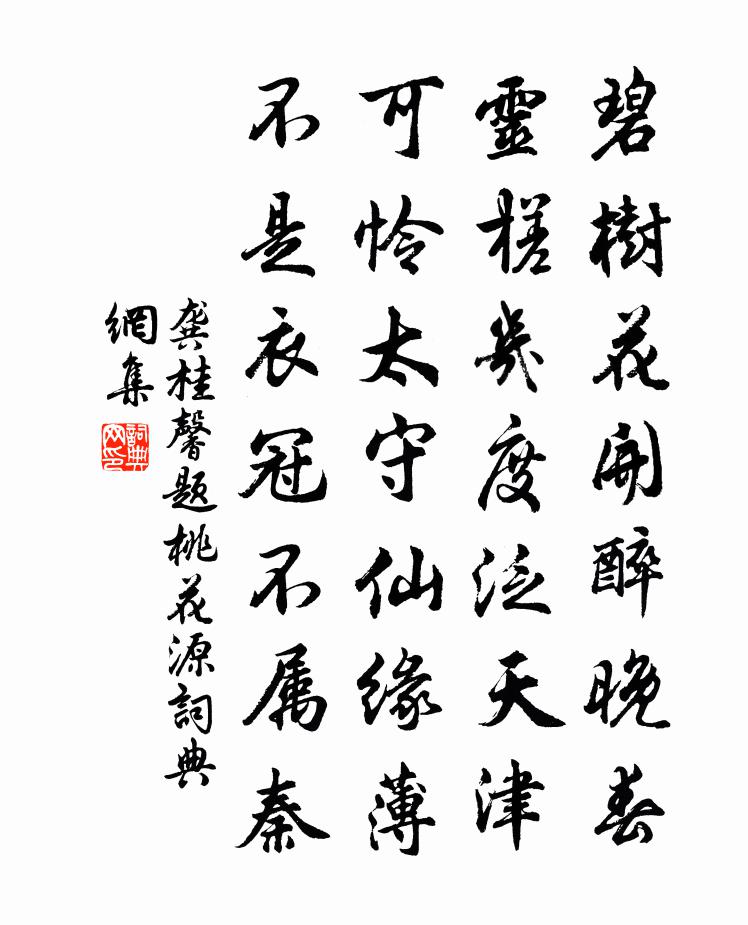 碧樹花開醉晚春
靈槎幾度泛天津
可憐太守仙緣薄
不是衣冠不屬秦
龔桂馨題桃花源詞典
網集
詞典
网印